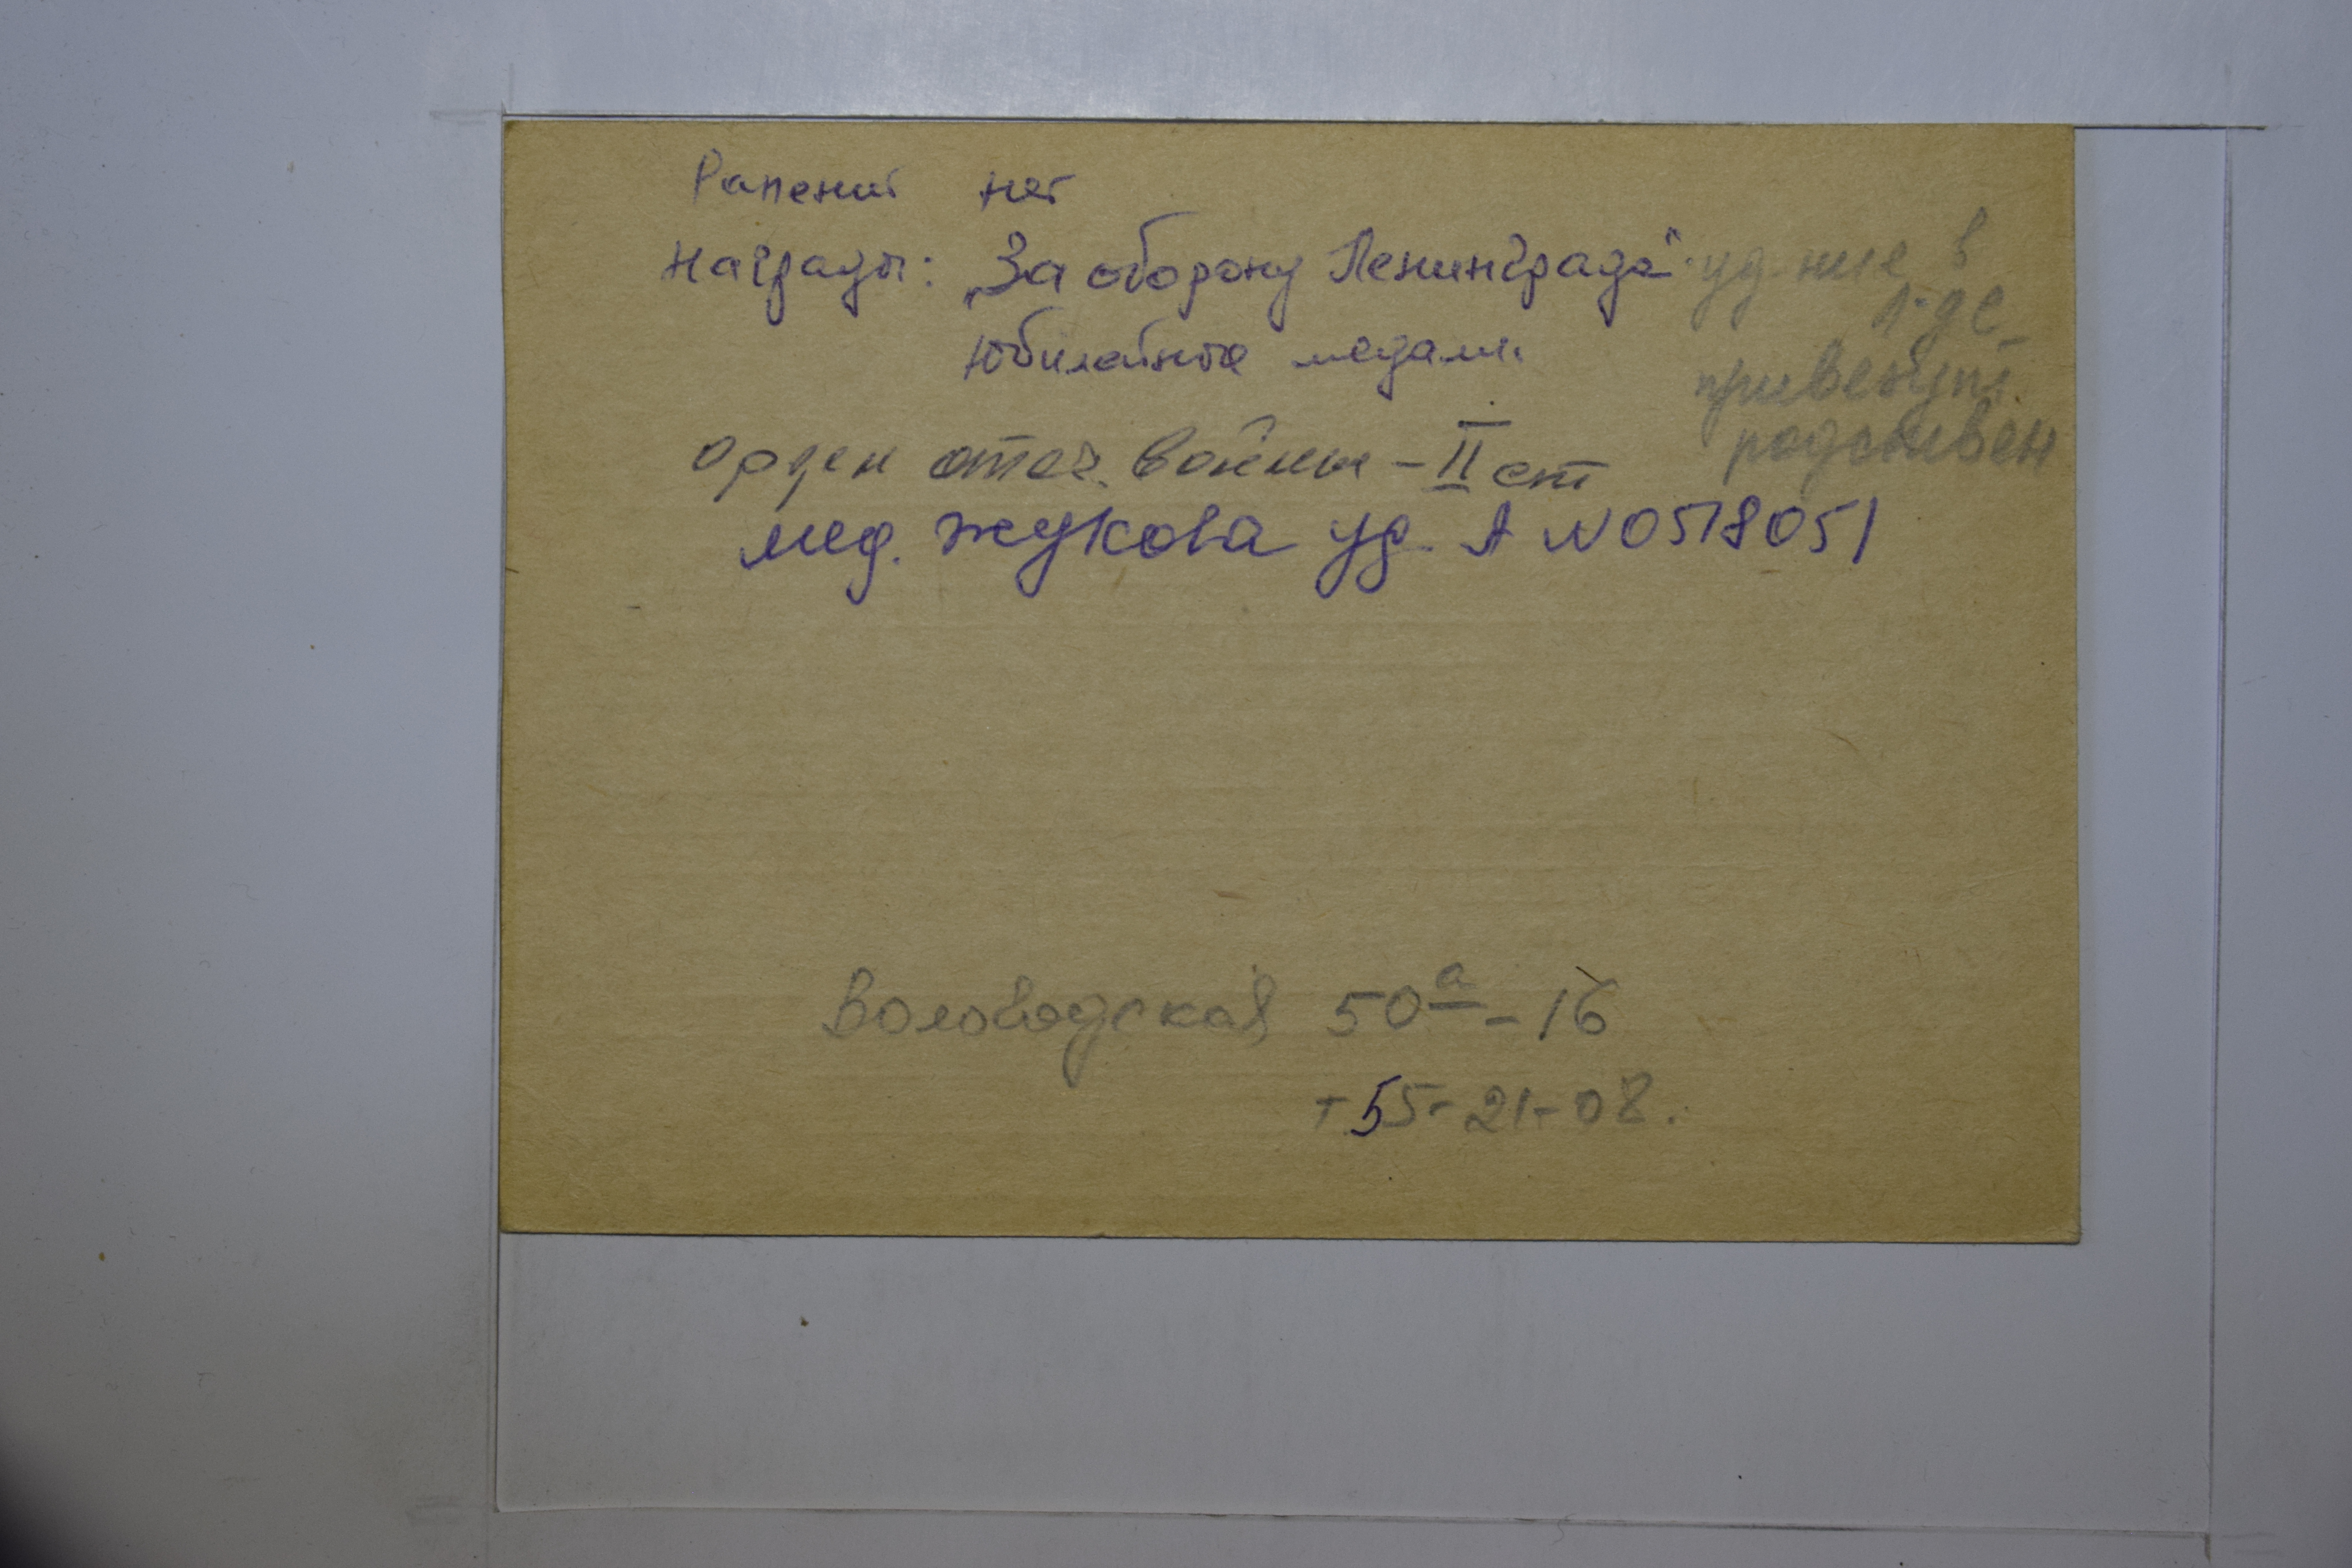 Ранений нет
Награды: „За оборону Ленинграда" уд-ние в
л-де
Юбилейные медали
привезут
родствен
орден отеч. войны - II ст
мед. Жукова уд. А № 0518051
Володарская 50а - 16
т 55-21-08.